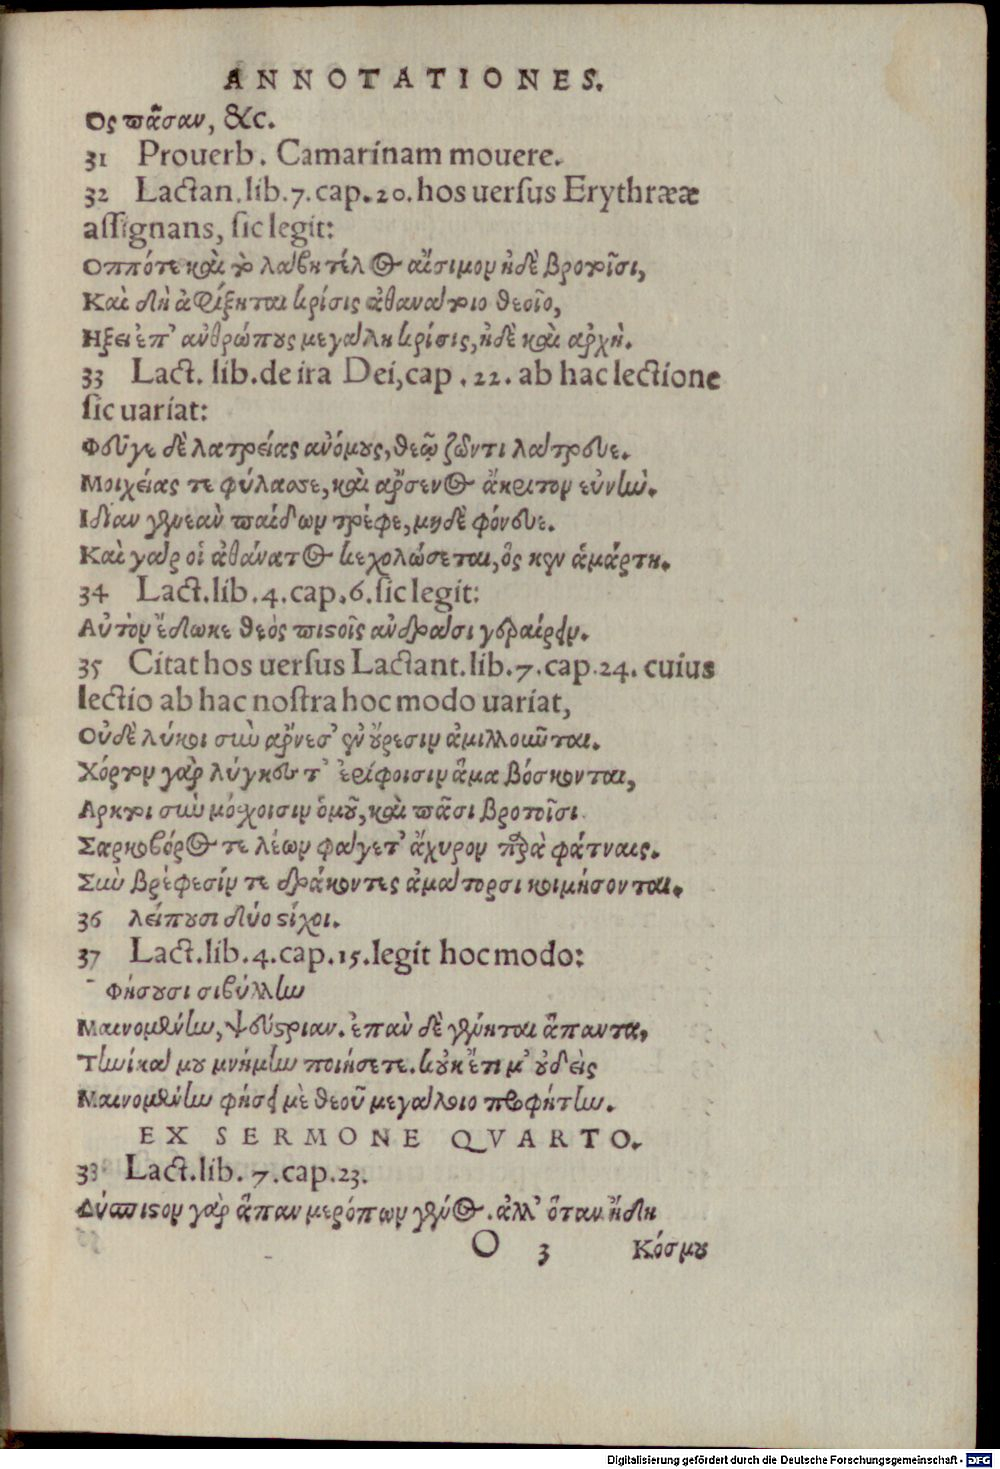 ANNOTATIONES.
Ος πᾶσαν, &c.
31 Prouerb. Camarinam mouere.
32 Lactan. lib. 7. cap. 20. hos uersus Erythrææ
assignans, sic legit:
Οππότε καὶ τὸ λάβη τέλος αἴσιμον ἠδὲ βροτοῖσι,
Καὶ δὴ ἀφίξηται κρίσις ἀθανάτοιο θεοῖο,
Ηξει ἐπ' ἀνθρώπους μεγάλη κρίσις, ἠδὲ καὶ ἀρχὴ.
33 Lact. lib. de ira Dei, cap. 22. ab hac lectione
sic uariat:
Φεῦγε δὲ λατρείας ἀνόμους, θεῷ ζῶντι λάτρευε.
Μοιχείας τε φύλασσε, καὶ ἄρσενος ἄκριτον εὐνὴν.
Ιδίαν γενεὰν παίδων τρέφε, μηδὲ φόνευε.
Καὶ γάρ οἱ ἀθάνατος κεχολώσεται, ὅς κεν ἁμάρτῃ.
34 Lact. lib. 4. cap. 6. sic legit:
Αὐτὸν ἔδωκε θεὸς πιστοῖς ἀνδράσι γεραίρειν.
35 Citat hos uersus Lactant. lib. 7. cap. 24. cuius
lectio ab hac nostra hoc modo uariat,
Οὐδὲ λύκοι σὺν ἄρνεσ' ἐν οὔρεσιν ἁμιλλοῦνται.
Χόρτον γὰρ λύγκες τ' ἐρίφοισιν ἅμα βόσκονται,
Αρκτοι σὺν μόσχοισιν ὁμοῦ, καὶ πᾶσι βροτοῖσι.
Σαρκοβόρος τε λέων φάγετ' ἄχυρον παρὰ φάτναις.
Σὺν βρέφεσίν τε δράκοντες ἀμάτορσι κοιμήσονται.
36 λείπουσι δύο στίχοι.
37 Lact. lib. 4. cap. 15. legit hoc modo:
Φήσουσι σιβύλλην
Μαινομένην, ψεύστριαν. ἐπὰν δὲ γένηται ἅπαντα,
Τηνίκα μου μνήμην ποιήσετε. κοὐκ ἔτι μ' οὐδεὶς
Μαινομένην φήσει μὲ θεοῦ μεγάλοιο προφήτην.
EX SERMONE QVARTO.
38 Lact. lib. 7. cap. 23.
Δύσπιστον γὰρ ἅπαν μερόπων γένος. ἀλλ' ὅταν ἤδη
O 3 Κόσμου
Digitalisierung gefördert durch die Deutsche Forschungsgemeinschaft - DFG